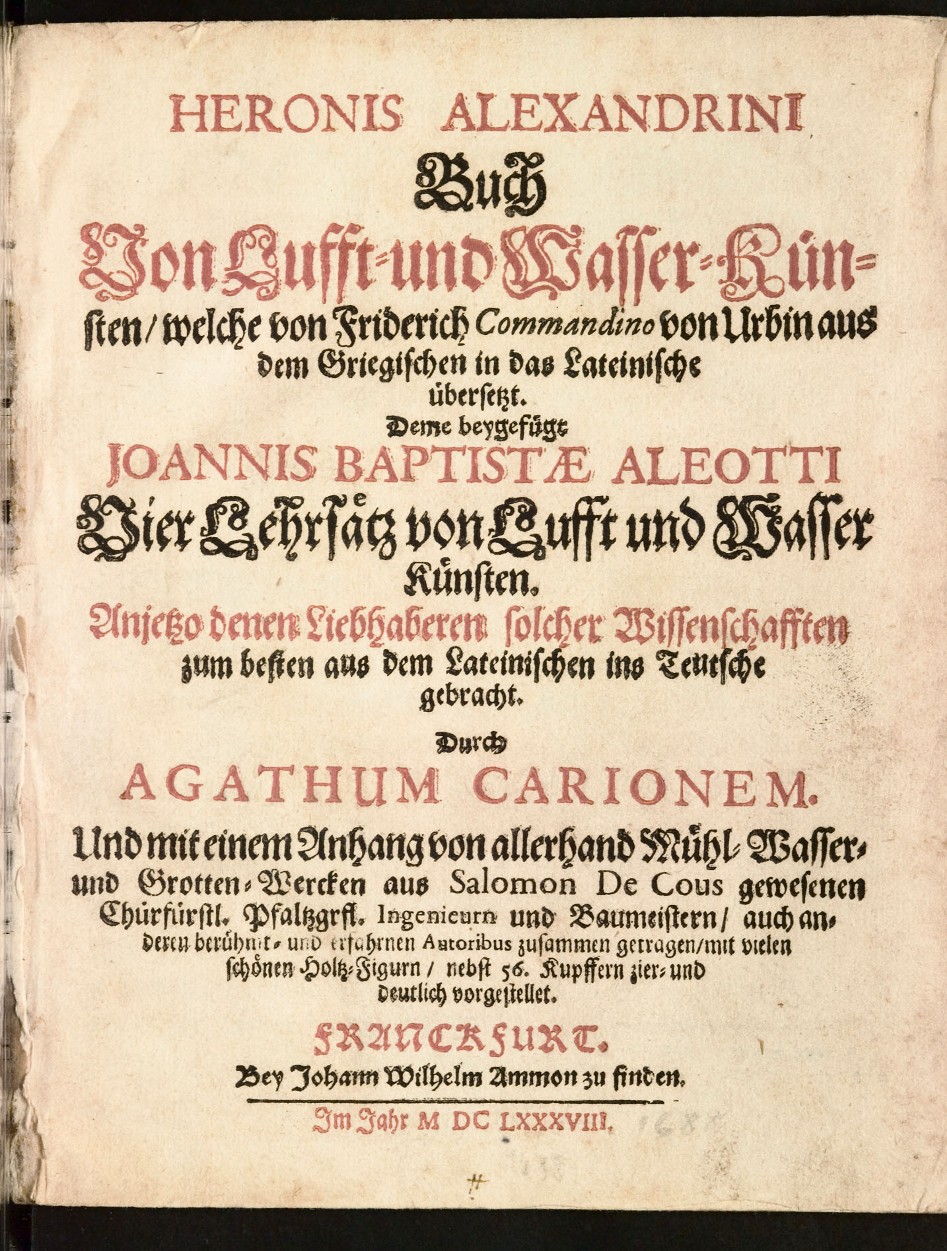 HERONIS ALEXANDRINI
Buch
Von Lufft-und Wasser-Kün-
sten/ welche von Friderich Commandino von Urbin aus
dem Griegischen in das Lateinische
übersetzt.
Deme beygefügt
JOANNIS BAPTISTÆ ALEOTTI
Vier Lehrsätz von Lufft und Wasser
Künsten.
Anjetzo denen Liebhaberen solcher Wissenschafften
zum besten aus dem Lateinischen ins Teutsche
gebracht.
Durch
AGATHUM CARIONEM.
Und mit einem Anhang von allerhand Mühl- Wasser-
und Grotten-Wercken aus Salomon De Cous gewesenen
Chürfürstl. Pfaltzgrfl. Ingenieurn und Baumeistern/ auch an-
deren berühmt- und erfahrnen Autoribus zusammen getragen/mit vielen
schönen Holtz-Figurn/ nebst 56. Kupffern zier- und
deutlich vorgestellet.
FRANCKFURT.
Bey Johann Wilhelm Ammon zu finden.
Im Jahr M DC LXXXVIII.